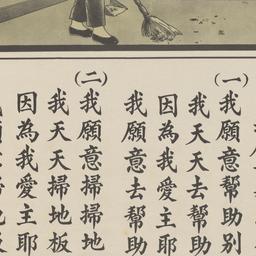 (一)
我願意幫助别
我天天去幫助
因為我愛主耶
我願意去幫助
(二)
我願意掃掃地
我天天掃地板
因為我愛主耶